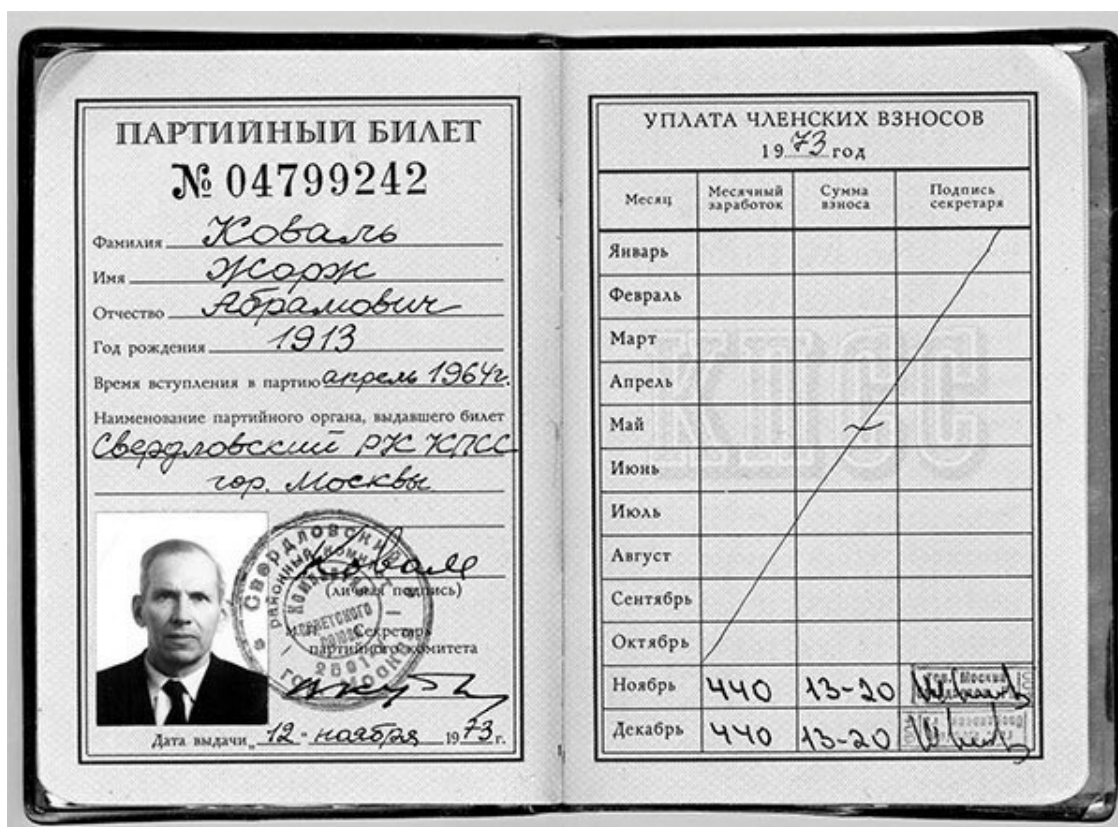 ПАРТИЙНЫЙ БИЛЕТ
№ 04799242
Фамилия Коваль
Имя Жорж
Отчество Абрамович
Год рождения 1913
Время вступления в партию апрель 1964г.
Наименование партийного органа, выдавшего билет
Свердловский РК КПСС
гор. Москвы
Коваль
(личная подпись)
Секретарь
партийного комитета
Дата выдачи „12" ноября 1973 г.
УПЛАТА ЧЛЕНСКИХ ВЗНОСОВ
1973 год
Месяц Месячный заработок Сумма взноса Подпись секретаря
Январь
Февраль
Март
Апрель
Май
Июнь
Июль
Август
Сентябрь
Октябрь
Ноябрь 440 13-20
Декабрь 440 13-20
КПСС